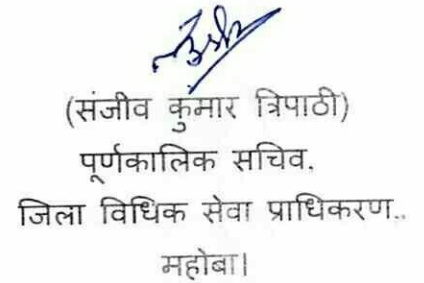 (संजीव कुमार त्रिपाठी)
पूर्णकालिक सचिव,
जिला विधिक सेवा प्राधिकरण..
महोबा।